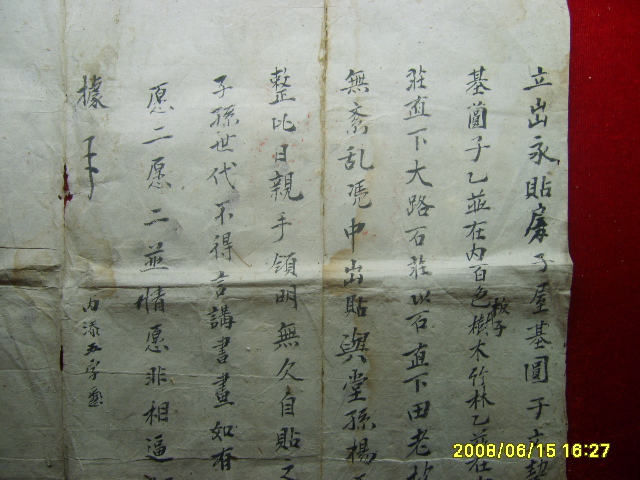 立出永貼房子屋基園子文契
基園子乙並在內百色樹木竹林乙並在
板子
莊直下大路石莊以石直下田老
無紊乱凴中出貼與堂孫楊
整比日親手領明無欠自貼之
子孫世代不得言講書畫如有
愿二愿二並情愿非相逼
據
內添五字
2008/06/15 16:27